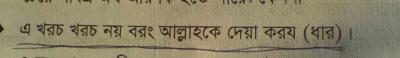 এ খরচ খরচ নয় বরং আল্লাহকে দেয়া করয (ধার) ।